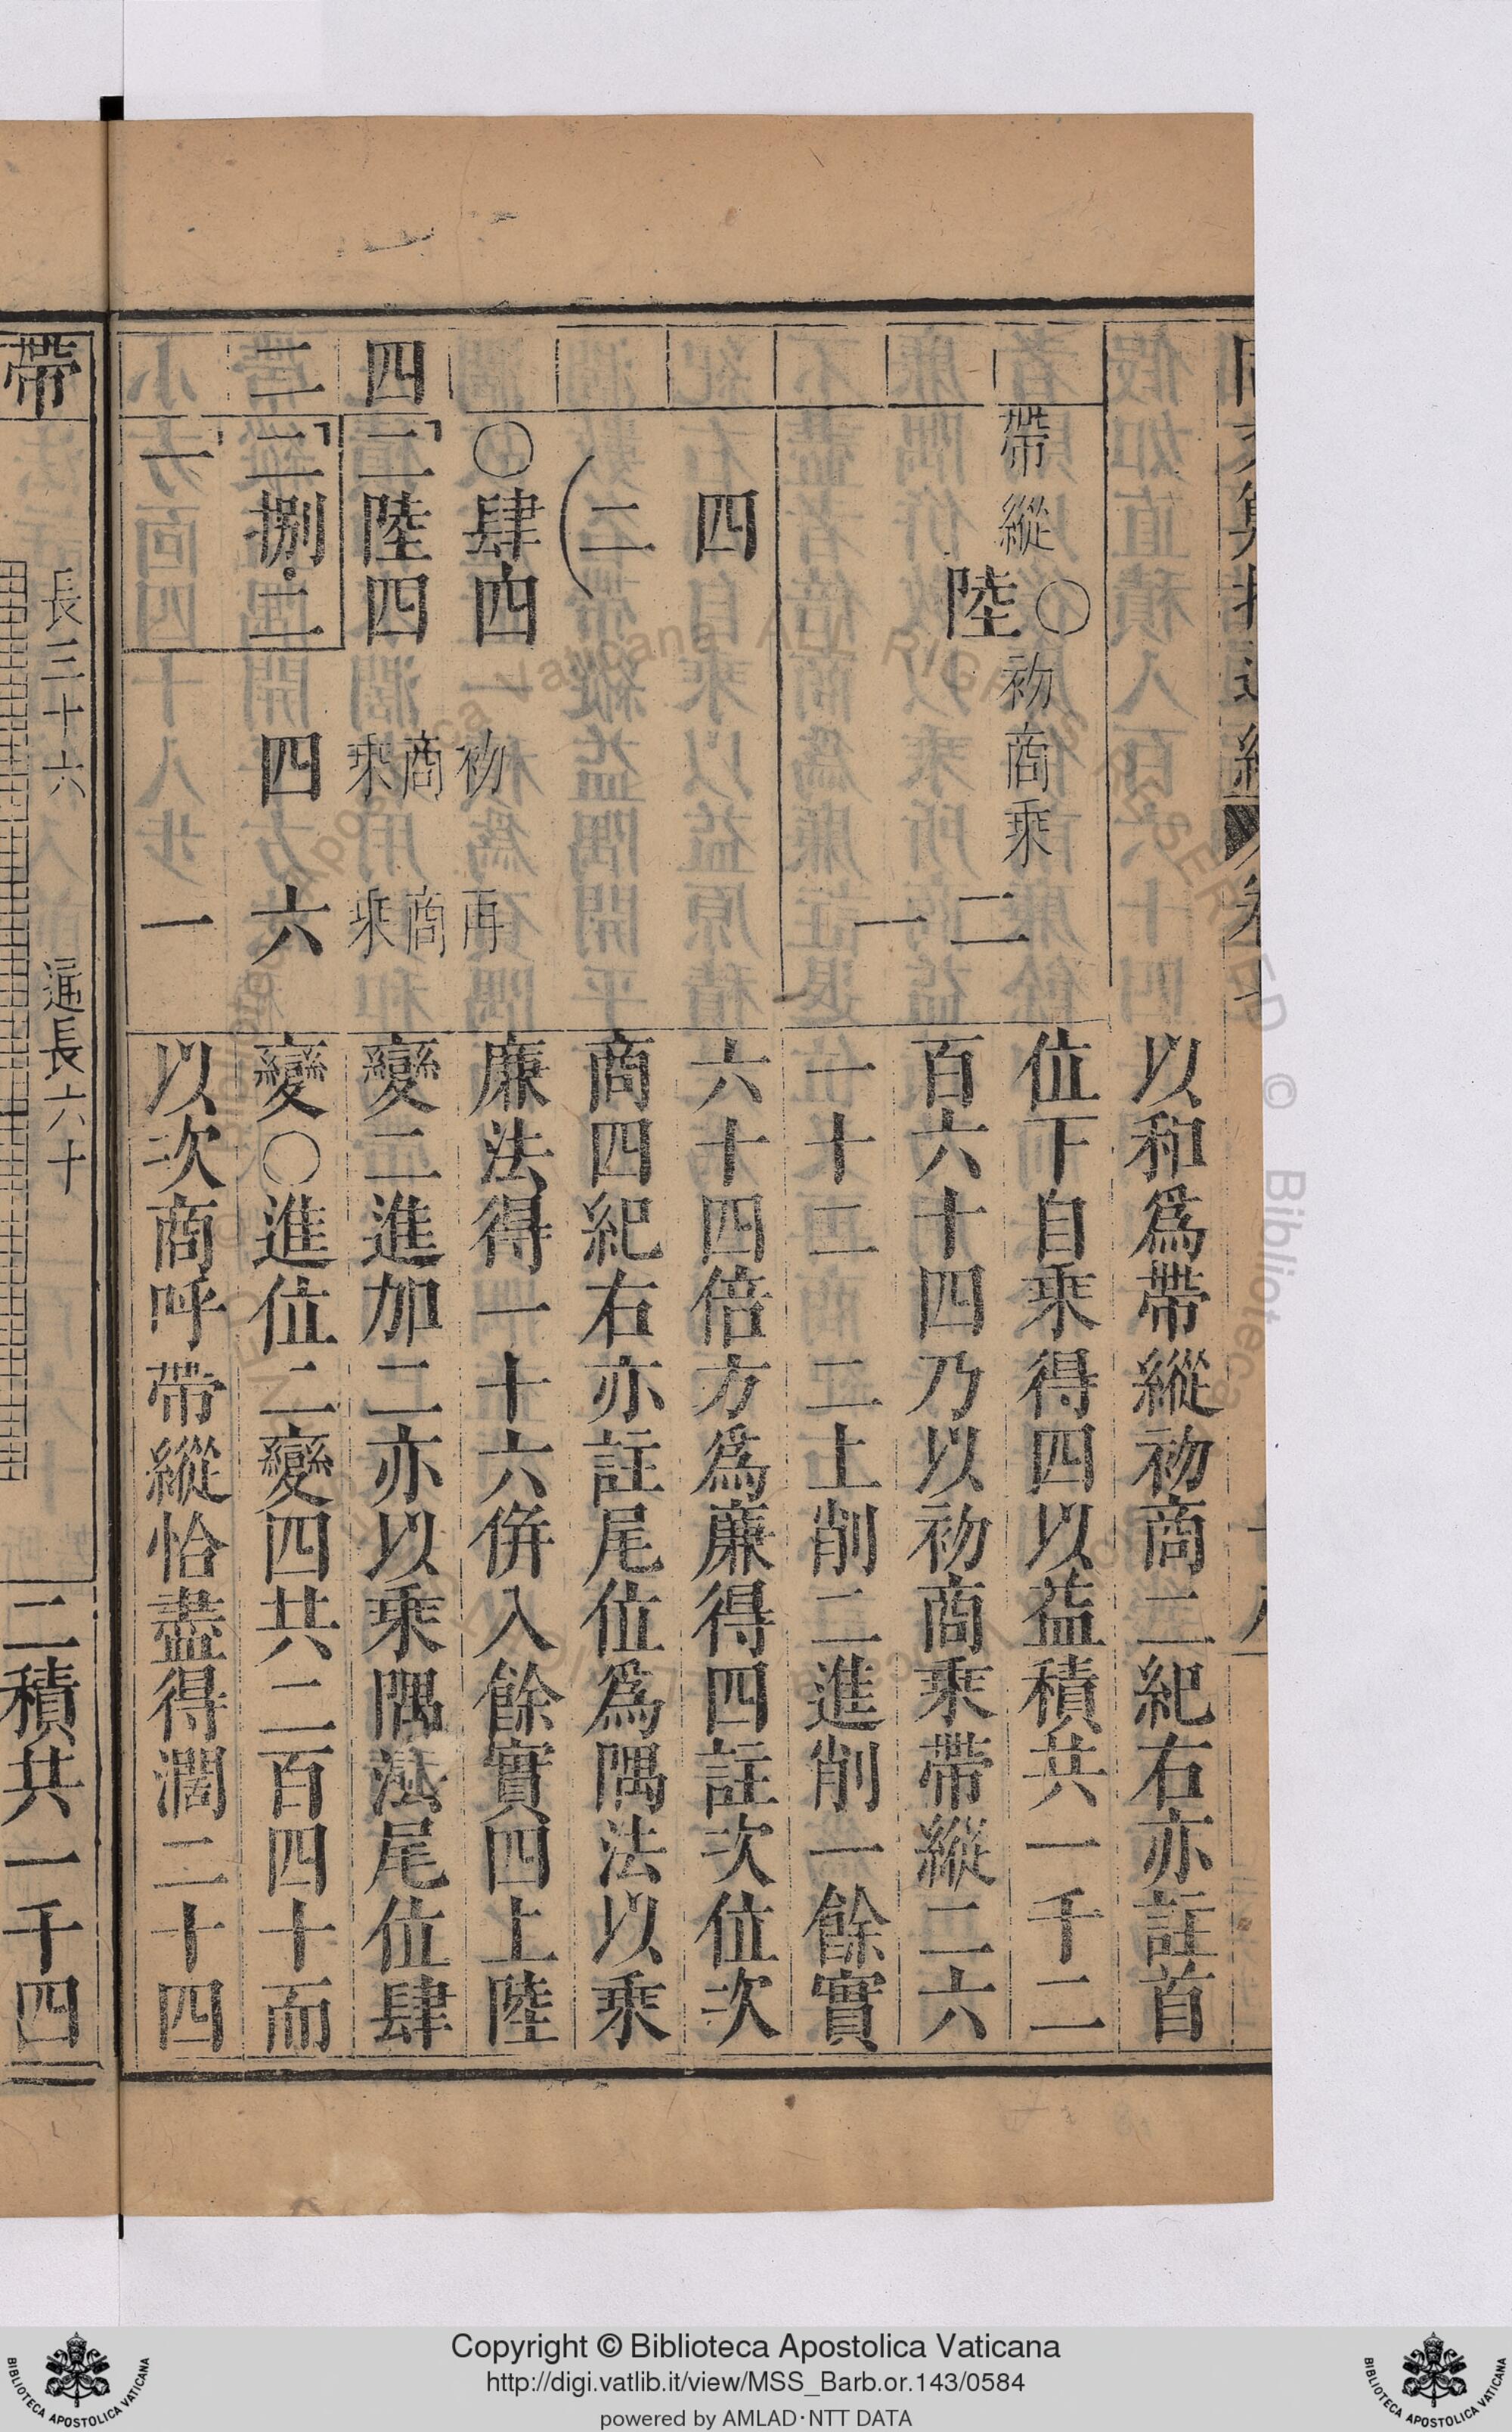 以和爲帶縱初商二紀右亦註首
位下自乘得四以益積共一千二
百六十四乃以初商乘帶縱二六
一十二二上削二進削一餘實
六十四倍方爲廉得四註次位次
商四紀右亦註尾位爲隅法以乘
廉法得一十六併入餘實四上陸
變二進加二亦以乘隅法尾位肆
變〇進位二變四共二百四十而
以次商呼帶縱恰盡得濶二十四
帶縱〇初商乘二
陸一
四
二
〇肆四 初 再
四 二陸四 商乘 商乘
二 二捌二 四 六
一 一
帶
長三十六 通長六十
二積共一千四
Copyright © Biblioteca Apostolica Vaticana
http://digi.vatlib.it/view/MSS_Barb.or.143/0584
powered by AMLAD·NTT DATA
BIBLIOTECA APOSTOLICA VATICANA
BIBLIOTECA APOSTOLICA VATICANA